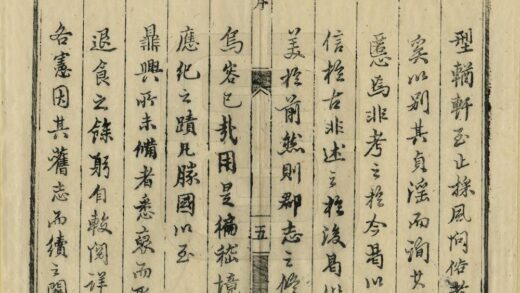 型輶軒至止採風問俗
奚以別其貞淫而洵其
慝焉非考之於今曷以
信於古非述之於後曷
美於前然則郡志之
序
五
烏容已哉用是徧嵇境
應化之蹟凡勝國以至
鼎興所未備者悉裒而
退食之餘躬自較閱詳
各憲因其舊志而續之